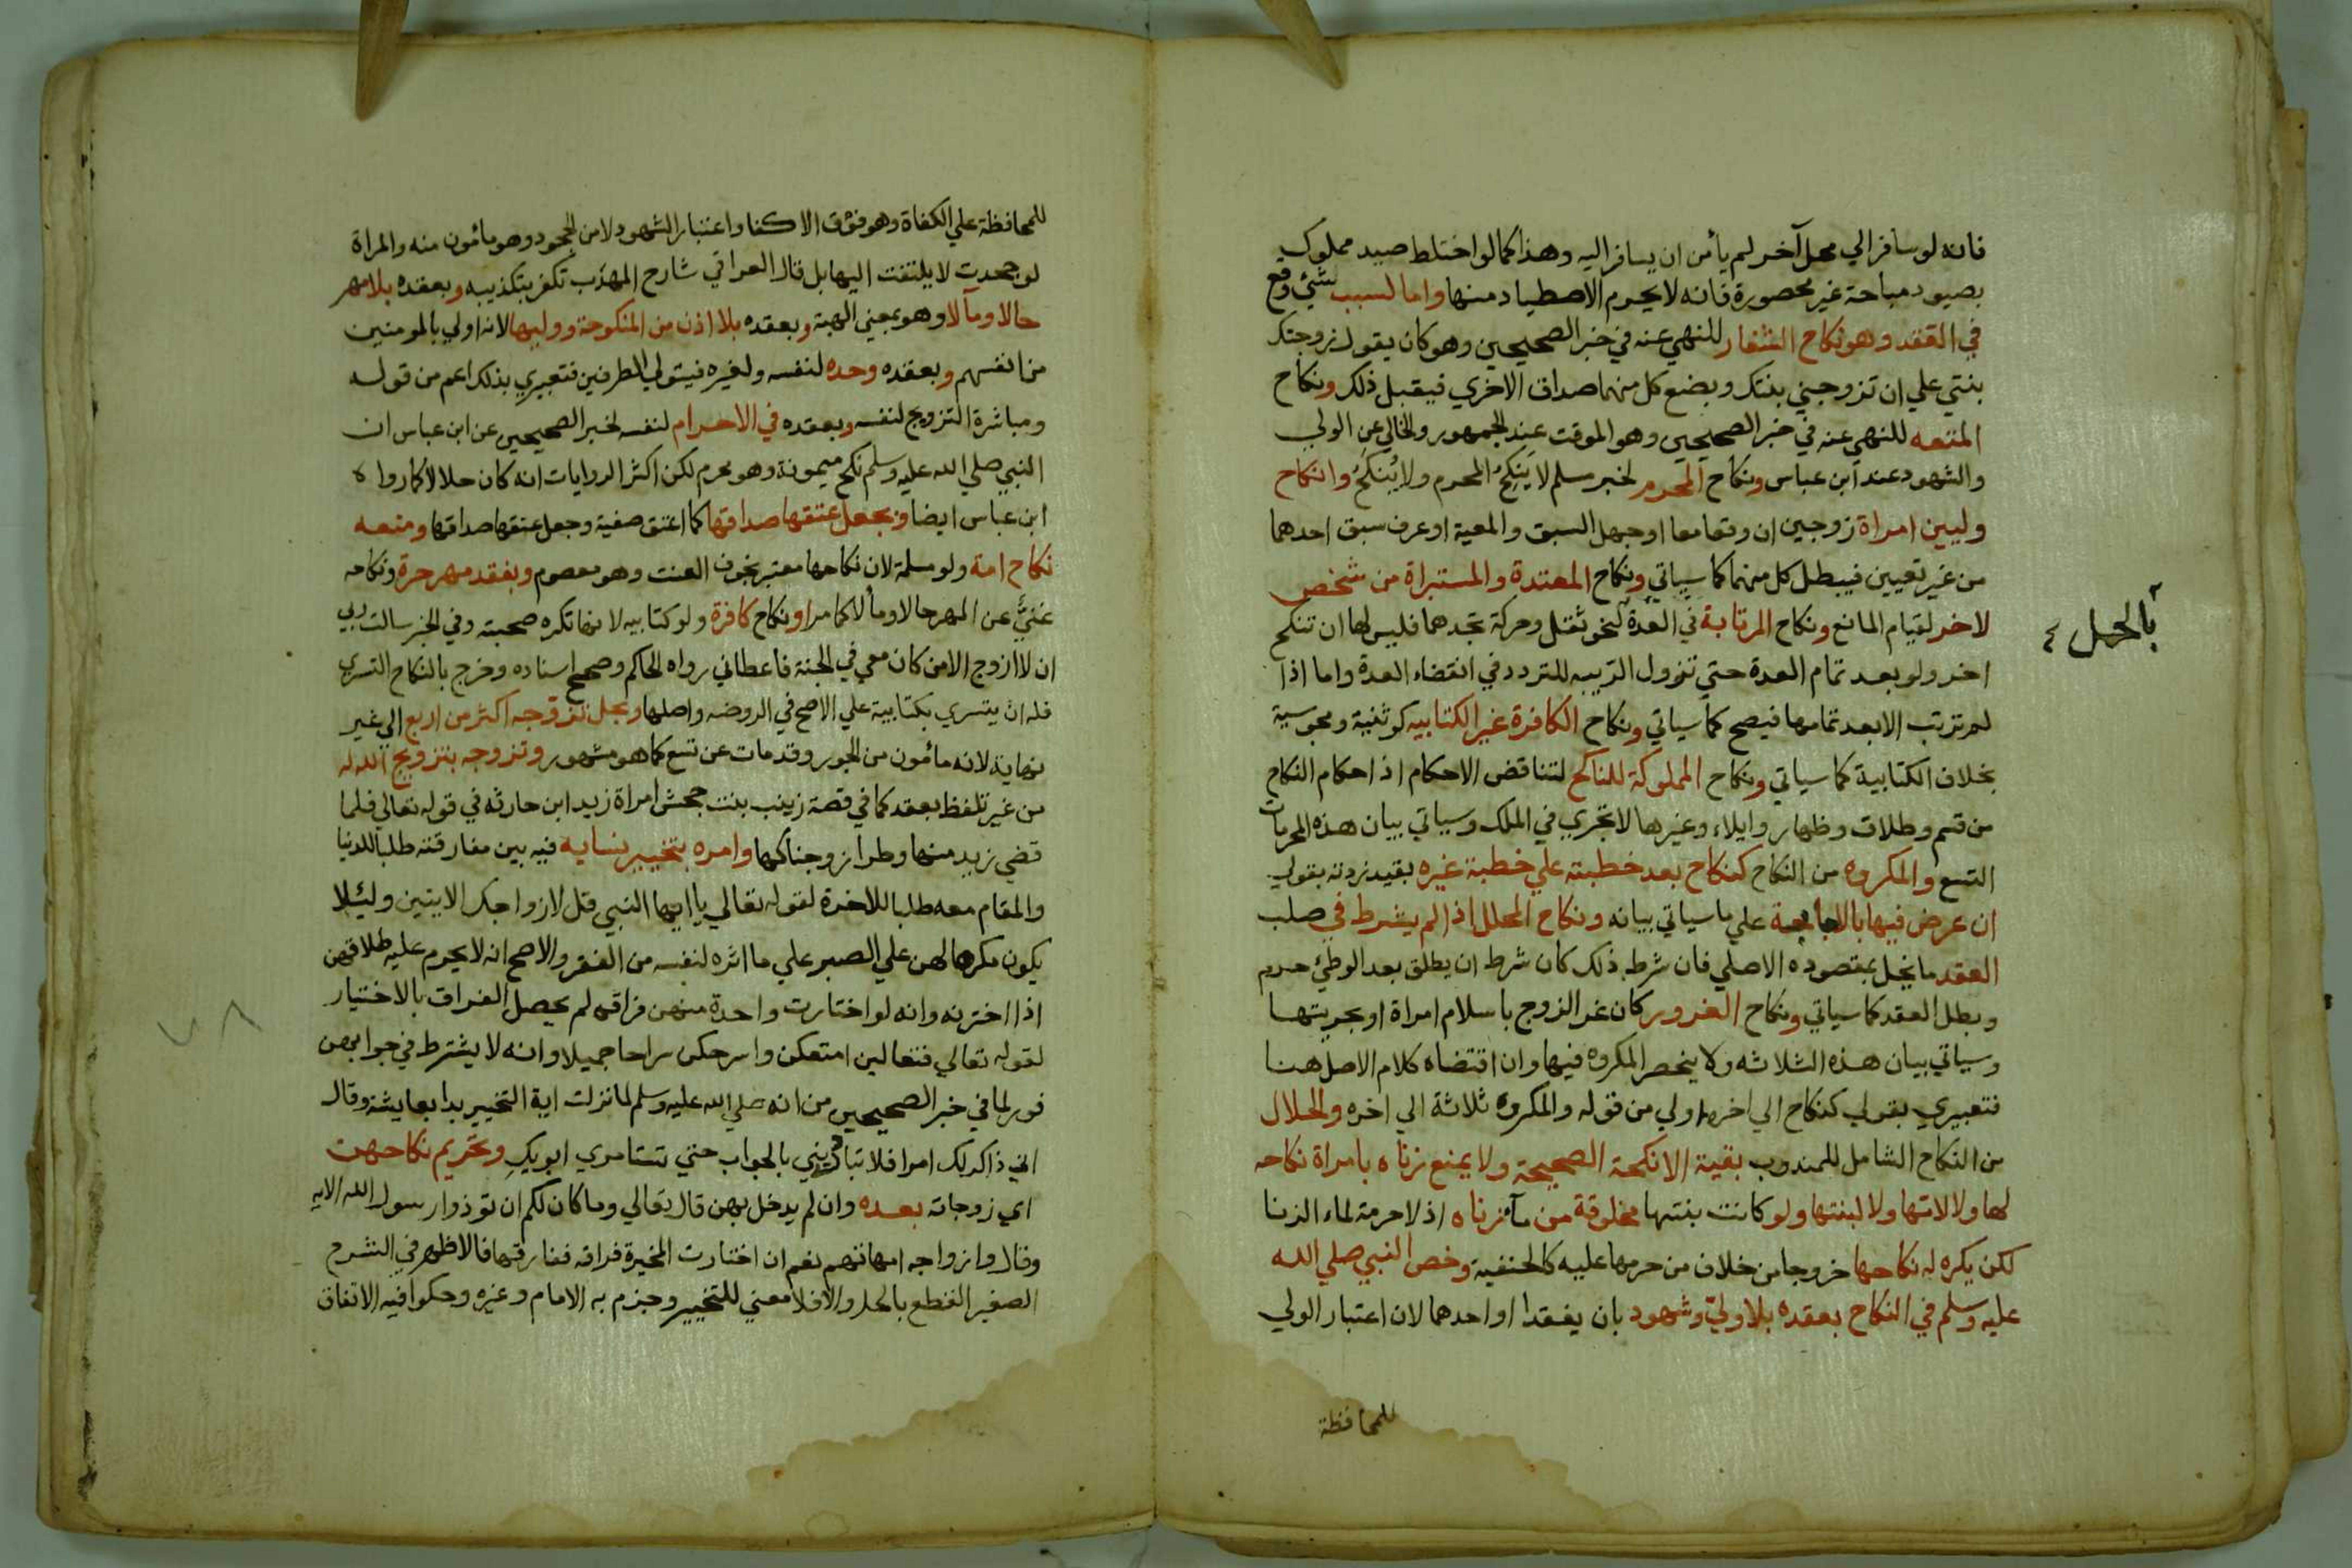 فانه لو سافر الي محل آخر لم يأمن ان يسافر اليه وهذا كما لو اختلط صيد مملوك
بصيود مباحة غير محصورة فانه لا يحرم الاصطياد منها واما لسبب لشئ وقع
في العقد وهو نكاح الشغار للنهي عنه في خبر الصحيحين وهو كان يقول زوجتك
بنتي علي ان تزوجني بنتك وبضع كل منهما صداق الاخري فيقبل ذلك ونكاح
المتعه للنهي عنه في خبر الصحيحين وهو الموقت عند الجمهور والخالي عن الولي
والشهود عند ابن عباس ونكاح المحرم لخبر مسلم لا يَنكِحُ المحرم ولا يُنكِحُ وانكاح
وليين امراة زوجين ان وقعا معا او جهل السبق والمعية او عرف سبق احدهما
من غير تعيين فيبطل كل منهما كما سياتي ونكاح المعتدة والمستبراة من شخص
لاخر لقيام المانع ونكاح المرتابة في العدة لنحو ثقل وحركة تجدهما فليس لها ان تنكح
بالحمل ٤
اخر ولو بعد تمام العدة حتي تزول الريبه للتردد في انقضاء العدة واما اذا
لم ترتب الا بعد تمامها فيصح كما سياتي ونكاح الكافرة غير الكتابيه كوثنية ومجوسية
بخلاف الكتابية كما سياتي ونكاح المملوكة للناكح لتناقض الاحكام اذ احكام النكاح
من قسم وطلاق وظهار وايلاء وغيرها لا تجري في الملك وسياتي بيان هذه المحرمات
التسع والمكروه من النكاح كنكاح بعد خطبته علي خطبة غيره بقيد زدته بقولي
ان عرض فيها بالاجابة علي ما سياتي بيانه ونكاح المحلل اذا لم يشرط في صلب
العقد ما يخل بمقصوده الاصلي فان شرط ذلك كان شرط ان يطلق بعد الوطئ حرم
وبطل العقد كما سياتي ونكاح الغرور كان غر الزوج باسلام امراة او بحريتها
وسياتي بيان هذه الثلاثه ولا ينحصر المكروه فيها وان اقتضاه كلام الاصل هنا
فتعبيري بقولي كنكاح الي اخره اولي من قوله والمكروه ثلاثة الي اخره والحلال
من النكاح الشامل للمندوب بقية الانكحة الصحيحة ولا يمنع زناه بامراة نكاحه
لها ولا لامتها ولا لبنتها ولو كانت بنتها مخلوقة من مآء زناه اذ لا حرمة لماء الزنا
لكن يكره له نكاحها خروجا من خلاف من حرمها عليه كالحنفية وخص النبي صلي الله
عليه وسلم في النكاح بعقده بلا ولي وشهود بان يفقدا او احدهما لان اعتبار الولي
للمحافظة
للمحافظة علي الكفاة وهو فوق الاكفا واعتبار الشهود لامن الجحود وهو مأمون منه والمراة
لو جحدت لا يلتفت اليها بل قال العراقي شارح المهذب تكفر بتكذيبه وبعقده بلا مهر
حالا ومآلا وهو بمعني الهبة وبعقده بلا اذن من المنكوحة ووليها لانه اولي بالمومنين
من انفسهم وبعقده وحده لنفسه ولغيره فيتولي الطرفين فتعبيري بذلك اعم من قوله
ومباشرة التزويج لنفسه وبعقده في الاحرام لنفسه لخبر الصحيحين عن ابن عباس ان
النبي صلي الله عليه وسلم نكح ميمونة وهو محرم لكن اكثر الروايات انه كان حلالا كما رواه
ابن عباس ايضا وبجعل عتقها صداقها كما اعتق صفية وجعل عتقها صداقها ومنعه
نكاح امة ولو مسلمة لان نكاحها معتبر بخوف العنت وهو معصوم وبفقد مهر حرة ونكاحه
غنيّ عن المهر حالا ومآلا كما مر او نكاح كافرة ولو كتابيه لانها تكره صحبته وفي الخبر سالت ربي
ان لا ازوج الا من كان معي في الجنة فاعطاني رواه الحاكم وصحح اسناده وخرج بالنكاح التسري
فله ان يتسري بكتابية علي الاصح في الروضه واصلها وبحل تزوجه اكثر من اربع الي غير
نهاية لانه مأمون من الجور وقد مات عن تسع كما هو مشهور وتزوجه بتزويج الله له
من غير تلفظ بعقد كما في قصة زينب بنت جحش امراة زيد ابن حارثه في قوله تعالي فلما
قضي زيد منها وطرا زوجناكها وامره بتخيير نسايه فيه بين مفارقته طلبا للدنيا
والمقام معه طلبا للاخرة لقوله تعالي يا ايها النبي قل لازواجك الايتين ولئلا
يكون مكرها لهن علي الصبر علي ما اثره لنفسه من الفقر والاصح انه لا يحرم عليه طلاقهن
اذا اخترنه وانه لو اختارت واحدة منهن فراقه لم يحصل الفراق بالاختيار
لقوله تعالي فتعالين امتعكن واسرحكن سراحا جميلا وانه لا يشترط في جوابهن
فور لما في خبر الصحيحين من انه صلي الله عليه وسلم لما نزلت اية التخيير بدا بعايشة وقال
اني ذاكر لك امرا فلا تبادريني بالجواب حتي تستامري ابويكِ وتحريم نكاحهن
اي زوجاته بعده وان لم يدخل بهن قال تعالي وما كان لكم ان توذوا رسول الله الايه
وقال وازواجه امهاتهم نعم ان اختارت المخيرة فراقه ففارقها فالاظهر في الشرح
الصغير القطع بالحل والا فلا معني للتخيير وجزم به الامام وغيره وحكوا فيه الاتفاق